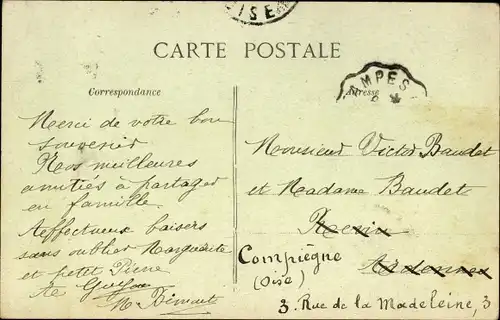 OISE
CARTE POSTALE
AMPES
Correspondance
Adresse
Merci de votre bon
souvenir
Nos meilleures
amitiés à partager
en famille.
Affectueux baisers
sans oublier Marguerite
et petit Pierre
Monsieur Victor Baudet
et Madame Baudet
Renin
Ardennes
Compiègne
(Oise)
3. Rue de la Madeleine, 3